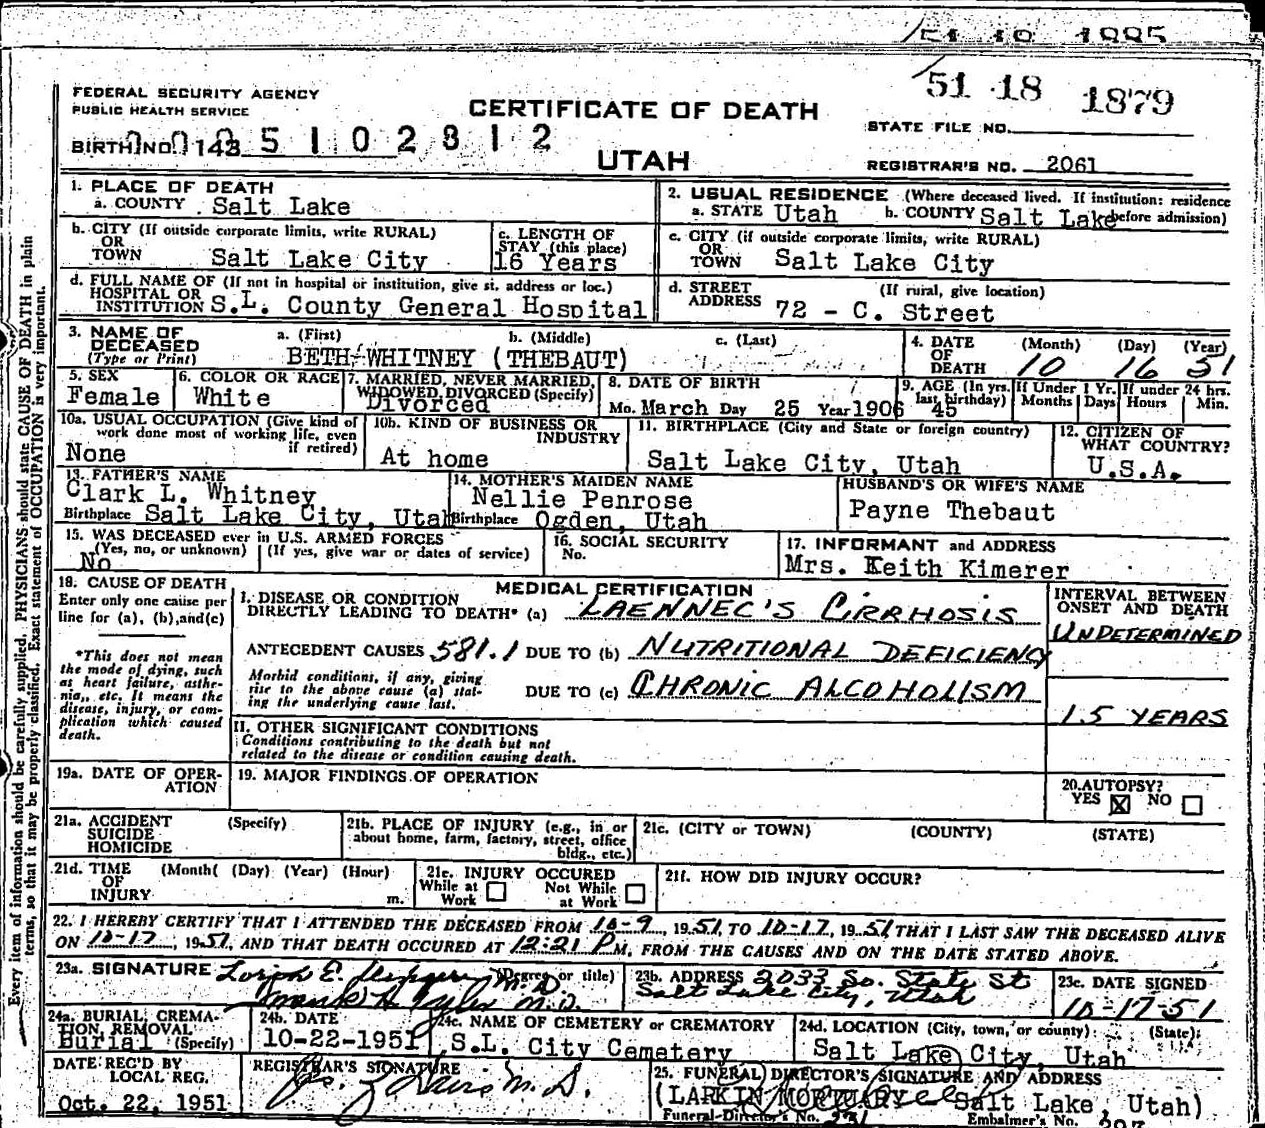 51 18 1885
51 18 1879
FEDERAL SECURITY AGENCY
PUBLIC HEALTH SERVICE
CERTIFICATE OF DEATH
STATE FILE NO.
BIRTH NO. 143 5 1 0 2 8 1 2
UTAH
REGISTRAR'S NO. 2061
1. PLACE OF DEATH
a. COUNTY Salt Lake
2. USUAL RESIDENCE (Where deceased lived. If institution: residence
a. STATE Utah b. COUNTY Salt Lake before admission)
b. CITY (If outside corporate limits, write RURAL)
OR
TOWN Salt Lake City
c. LENGTH OF
STAY (this place)
16 Years
c. CITY (if outside corporate limits, write RURAL)
OR
TOWN Salt Lake City
d. FULL NAME OF (If not in hospital or institution, give st. address or loc.)
HOSPITAL OR
INSTITUTION S.L. County General Hospital
d. STREET (If rural, give location)
ADDRESS 72 - C. Street
3. NAME OF
DECEASED
(Type or Print)
a. (First) b. (Middle) c. (Last)
BETH WHITNEY (THEBAUT)
4. DATE (Month) (Day) (Year)
OF
DEATH 10 16 51
5. SEX
Female
6. COLOR OR RACE
White
7. MARRIED, NEVER MARRIED,
WIDOWED, DIVORCED (Specify)
Divorced
8. DATE OF BIRTH
Mo. March Day 25 Year 1906
9. AGE (In yrs.
last birthday)
45
If Under 1 Yr.
Months Days
If under 24 hrs.
Hours Min.
10a. USUAL OCCUPATION (Give kind of
work done most of working life, even
if retired)
None
10b. KIND OF BUSINESS OR
INDUSTRY
At home
11. BIRTHPLACE (City and State or foreign country)
Salt Lake City, Utah
12. CITIZEN OF
WHAT COUNTRY?
U.S.A.
13. FATHER'S NAME
Clark L. Whitney
Birthplace Salt Lake City, Utah
14. MOTHER'S MAIDEN NAME
Nellie Penrose
Birthplace Ogden, Utah
HUSBAND'S OR WIFE'S NAME
Payne Thebaut
15. WAS DECEASED ever in U.S. ARMED FORCES
(Yes, no, or unknown) (If yes, give war or dates of service)
No
16. SOCIAL SECURITY
No.
17. INFORMANT and ADDRESS
Mrs. Keith Kimerer
18. CAUSE OF DEATH
Enter only one cause per
line for (a), (b), and (c)
*This does not mean
the mode of dying, such
as heart failure, asthe-
nia, etc. It means the
disease, injury, or com-
plication which caused
death.
MEDICAL CERTIFICATION
I. DISEASE OR CONDITION
DIRECTLY LEADING TO DEATH* (a) LAENNEC'S CIRRHOSIS
ANTECEDENT CAUSES 581.1 DUE TO (b) NUTRITIONAL DEFICIENCY
Morbid conditions, if any, giving
rise to the above cause (a) stat-
ing the underlying cause last.
DUE TO (c) CHRONIC ALCOHOLISM
INTERVAL BETWEEN
ONSET AND DEATH
UNDETERMINED
15 YEARS
II. OTHER SIGNIFICANT CONDITIONS
Conditions contributing to the death but not
related to the disease or condition causing death.
19a. DATE OF OPER-
ATION
19. MAJOR FINDINGS OF OPERATION
20. AUTOPSY?
YES NO
21a. ACCIDENT (Specify)
SUICIDE
HOMICIDE
21b. PLACE OF INJURY (e.g., in or
about home, farm, factory, street, office
bldg., etc.)
21c. (CITY or TOWN) (COUNTY) (STATE)
21d. TIME (Month( (Day) (Year) (Hour)
OF
INJURY m.
21e. INJURY OCCURED
While at Work Not While at Work
21f. HOW DID INJURY OCCUR?
22. I HEREBY CERTIFY THAT I ATTENDED THE DECEASED FROM 10-9, 1951, TO 10-17, 1951 THAT I LAST SAW THE DECEASED ALIVE
ON 10-17, 1951, AND THAT DEATH OCCURED AT 12:21 P M, FROM THE CAUSES AND ON THE DATE STATED ABOVE.
23a. SIGNATURE (Degree or title)
M.D.
Frank H. Tyler M.D.
23b. ADDRESS 2033 So. State St
Salt Lake City, Utah
23c. DATE SIGNED
10-17-51
24a. BURIAL, CREMA-
TION, REMOVAL
Burial (Specify)
24b. DATE
10-22-1951
24c. NAME OF CEMETERY or CREMATORY
S.L. City Cemetery
24d. LOCATION (City, town, or county) (State)
Salt Lake City, Utah
DATE REC'D BY
LOCAL REG.
Oct. 22, 1951
REGISTRAR'S SIGNATURE
M.D.
25. FUNERAL DIRECTOR'S SIGNATURE AND ADDRESS
(LARKIN MORTUARY Salt Lake, Utah)
Funeral Director's No. 231 Embalmer's No. 297
Every item of information should be carefully supplied. PHYSICIANS should state CAUSE OF DEATH in plain
terms, so that it may be properly classified. Exact statement of OCCUPATION is very important.